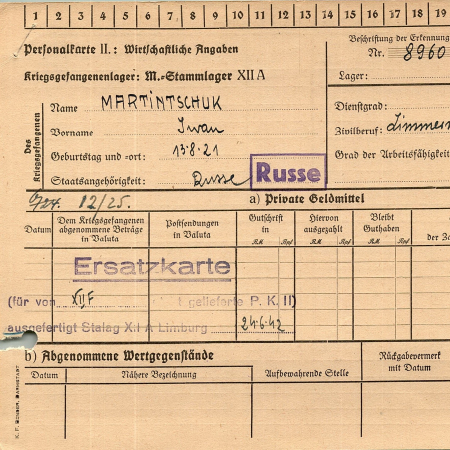 1 2 3 4 5 6 7 8 9 10 11 12 13 14 15 16 17 18 19
Personalkarte II.: Wirtschaftliche Angaben
Beschriftung der Erkennung
Nr. 8960
Kriegsgefangenenlager: M.-Stammlager XII A
Lager:
Des Kriegsgefangenen
Name MARTINTSCHUK
Dienstgrad:
Vorname Iwan
Zivilberuf: Zimmerm
Geburtstag und =ort: 13.8.21
Grad der Arbeitsfähigkeit
Staatsangehörigkeit: Russe Russe
12/25.
a) Private Geldmittel
Datum
Dem Kriegsgefangenen abgenommene Beträge in Valuta
Postsendungen in Valuta
Gutschrift in
RM Rpf
Hiervon ausgezahlt
RM Rpf
Bleibt Guthaben
RM Rpf
der Za
Ersatzkarte
(für von XII F t gelieferte P. K. II)
ausgefertigt Stalag XII A Limburg 24.6.42
b) Abgenommene Wertgegenstände
Rückgabevermerk mit Datum
Datum Nähere Bezeichnung Aufbewahrende Stelle